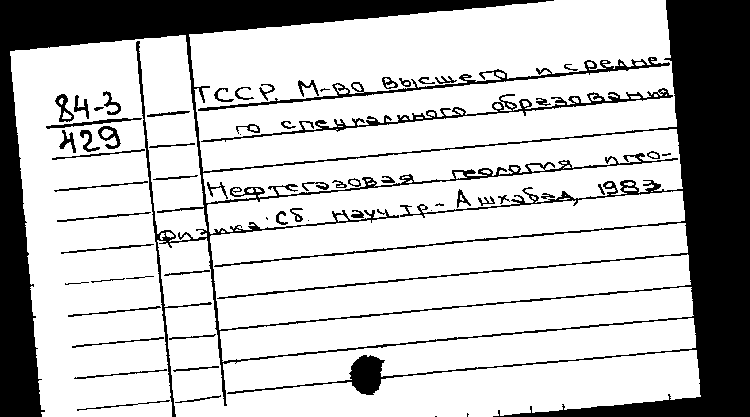 84-3
429
ТССР. М-во высшего и средне-
го специального образования
Нефтегазовая геология и гео-
физика: Сб. науч. тр. - Ашхабад, 1983